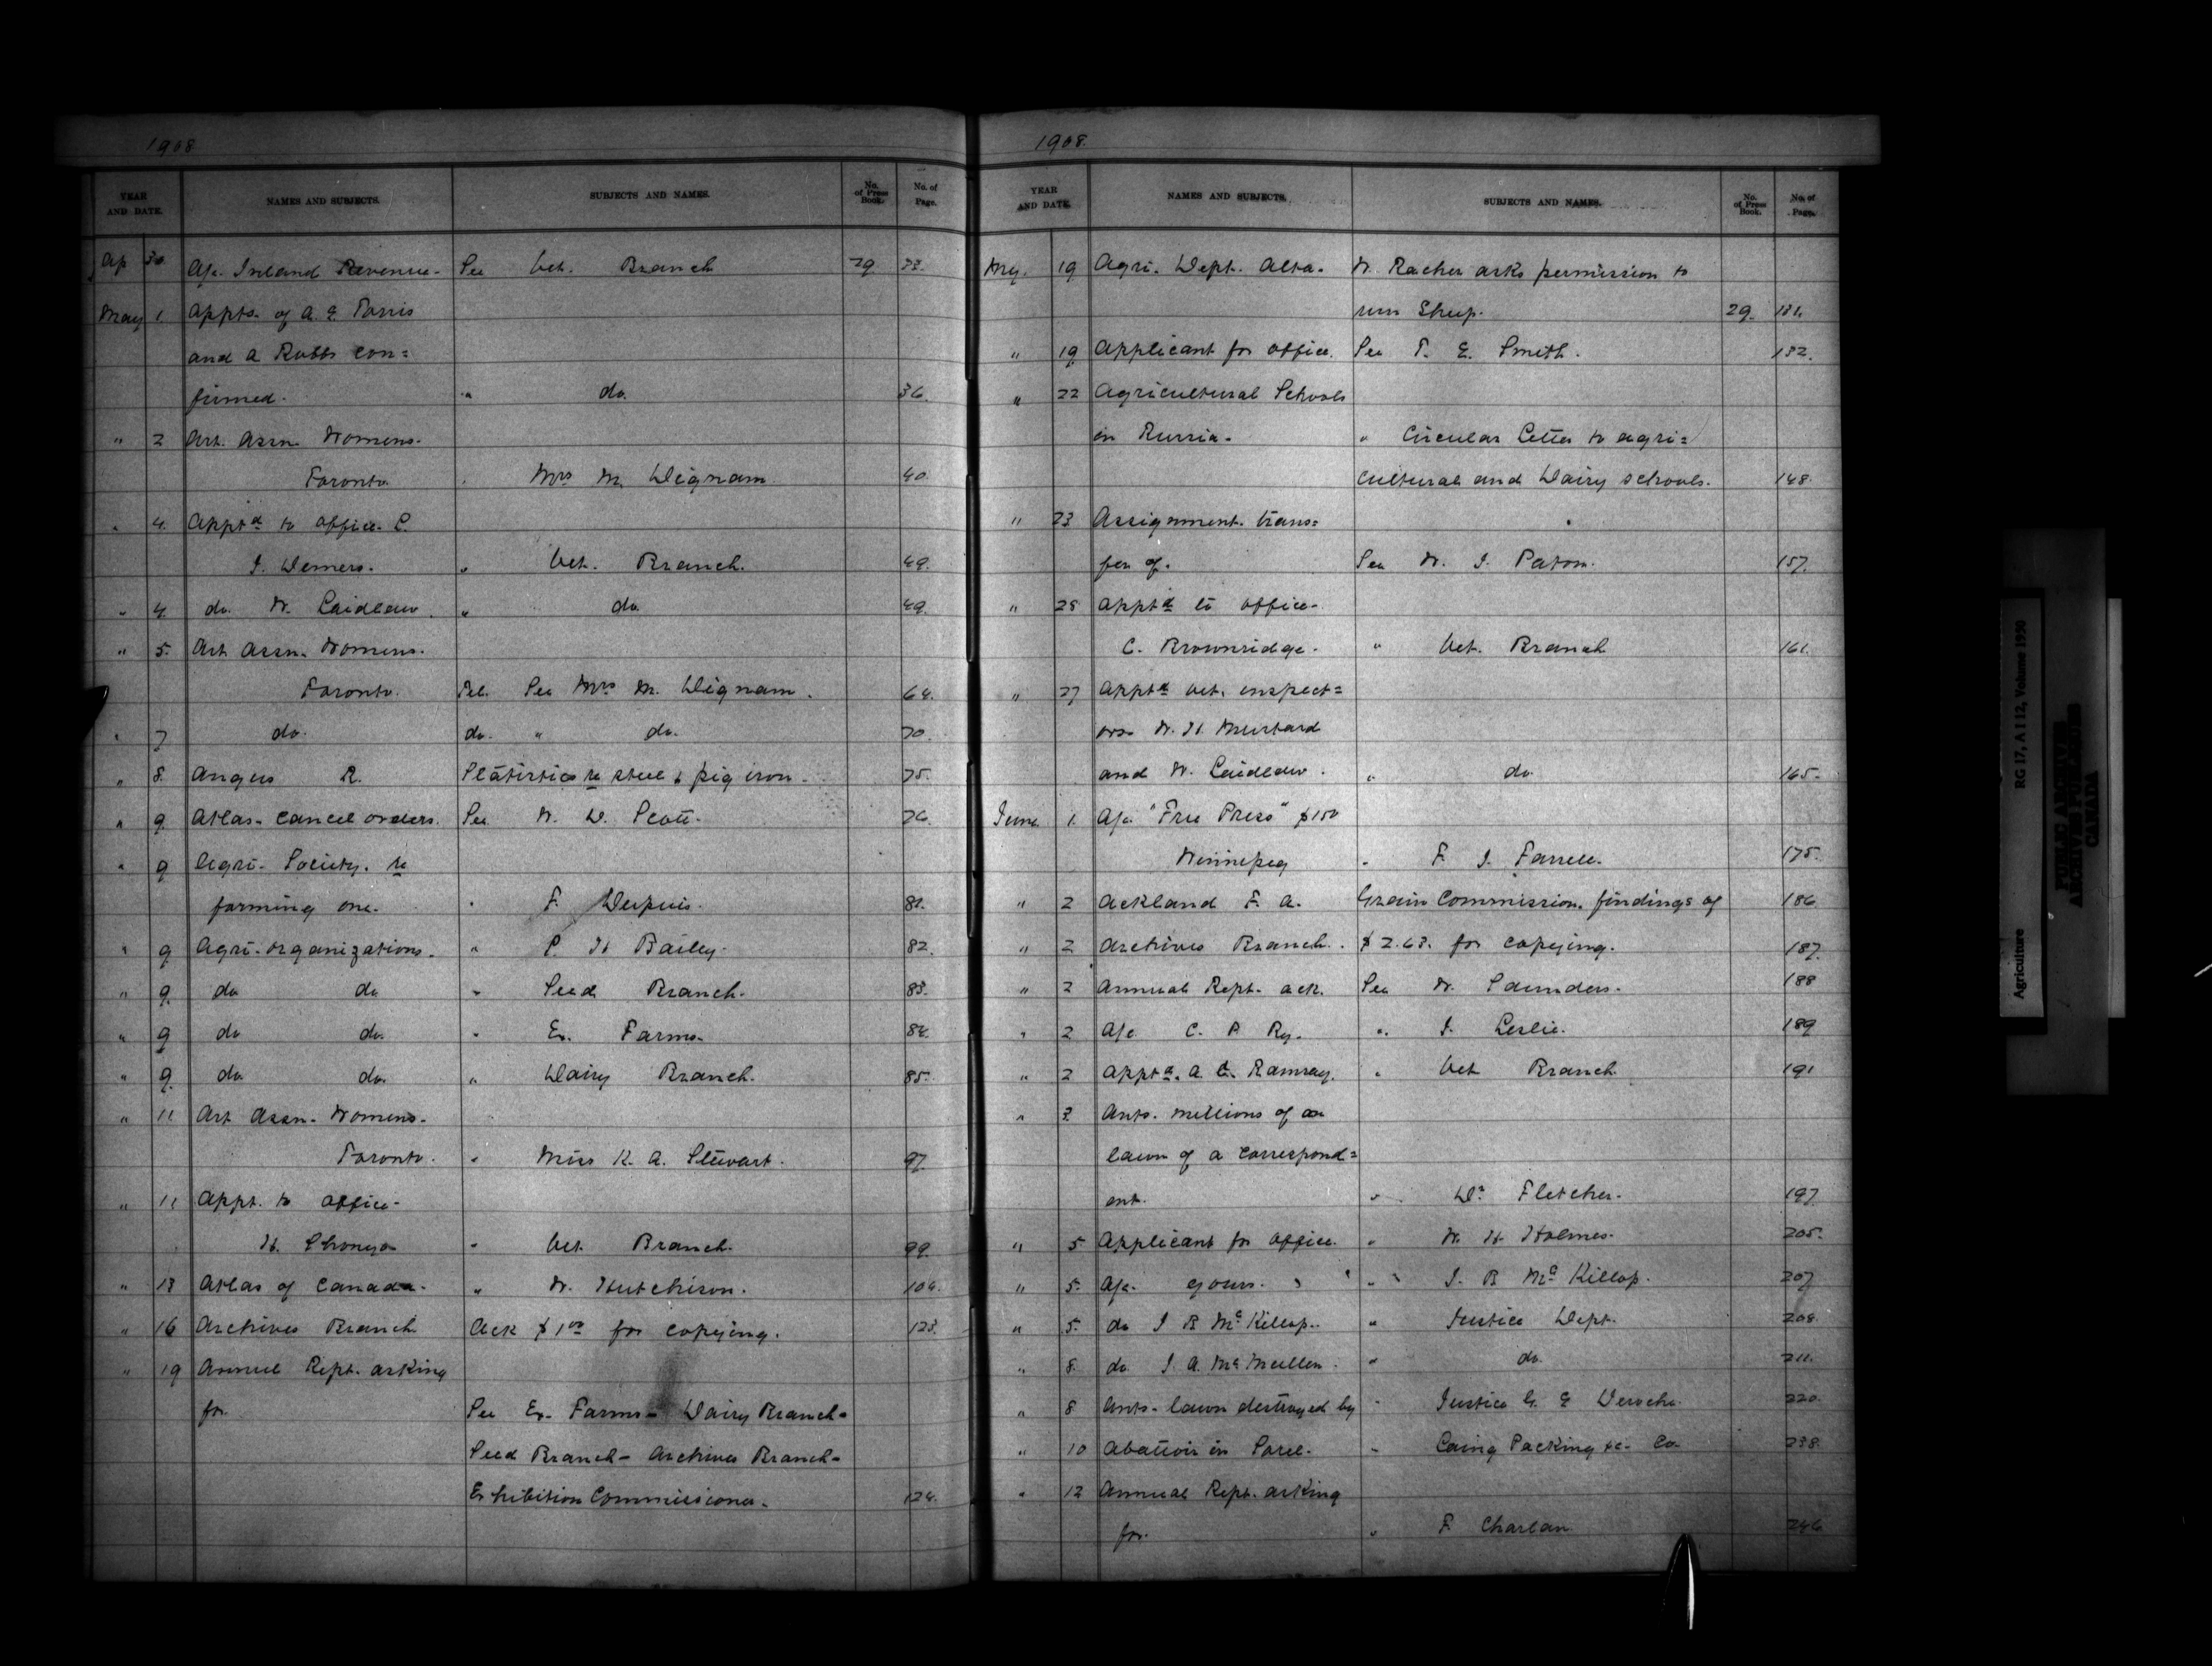 1908
YEAR AND DATE. NAMES AND SUBJECTS. SUBJECTS AND NAMES. No. of Press Book. No. of Page.
Ap 30 A/c. Inland Revenue. See Vet. Branch 29 33.
May 1. Appts. of A. E.
and A Robbs con=
firmed. " do. 36.
" 2 Art. Assn. Womens.
Toronto. " Mrs M. Dignam. 40.
" 4. Apptd to office.
J. Demers. " Vet. Branch. 49.
" 4. do. W. Laidlaw. " do 49.
" 5. Art Assn. Womens.
Toronto. Tel. See Mrs M. Dignam. 64.
" 7 do. do. " do. 70.
" 8. Angus R. Statistics re steel & pig iron. 75.
" 9. Atlas. Cancel orders. See W. D. Scott. 76.
" 9 Agri. Society. re
forming one. " F. Dupuis. 81.
" 9 Agri. organizations. " P. H Bailey. 82.
" 9. do do " Seed Branch. 83.
" 9 do do. " Ex. Farms. 84.
" 9. do do. " Dairy Branch. 85.
" 11 Art Assn. Womens.
Toronto. " Miss K. A. Stewart. 97.
" 11 Appt. to office.
H. " Vet. Branch. 99.
" 13 Atlas of Canada. " W. Hutchison. 104.
" 16 Archives Branch Ack $1.00 for copying. 123.
" 19 Annual Rept. asking
for. See Ex. Farms- Dairy Branch-
Seed Branch- Archives Branch-
Exhibition Commissioner. 124.
1908.
YEAR AND DATE. NAMES AND SUBJECTS. SUBJECTS AND NAMES. No. of Press Book. No. of Page.
My. 19 Agri. Dept. Alta. W. Racher asks permission to
run Sheep. 29. 131.
" 19 Applicant for office. See T. E. Smith. 132.
" 22 Agricultural Schools
in Russia. " Circular Letter to agri=
cultural and Dairy schools. 148.
" 23 Assignment. trans=
fer of. See W. J. Paton. 157.
" 25 Apptd to office-
C. Brownridge. " Vet. Branch 161.
" 27 Apptd Vet. inspect=
ors. W. H. Mustard
and W. Laidlaw. " do. 165.
June 1. A/c. "Free Press" $150
Winnipeg " F. J. Farrell. 175.
" 2 Ackland F. A. Grain Commission. findings of 186
" 2 Archives Branch. $2.63. for copying. 187.
" 2 Annual Rept. ack. See W. Saunders. 188
" 2 A/c C. P. Ry. " J. Leslie. 189
" 2 Apptd. A. C. Ramsay. " Vet Branch 191
" 3 Ants. millions of on
lawn of a correspond=
ent. " Dr Fletcher. 197
" 5 Applicant for office. " W. H. Holmes. 205.
" 5. A/c. yours. " J. B McKillop. 207
" 5. do J B McKillop. " Justice Dept. 208.
" 8. do. J. A. McMullen. " do. 211.
" 8 Ants. lawn destroyed by " Justice G. E 220.
" 10 Abattoir in Sorel. " Packing &c. Co. 238.
" 12 Annual Rept. asking
for. " F. Charlan. 246
Agriculture RG 17, A I 12, Volume 1950
PUBLIC ARCHIVES
ARCHIVES PUBLIQUES
CANADA